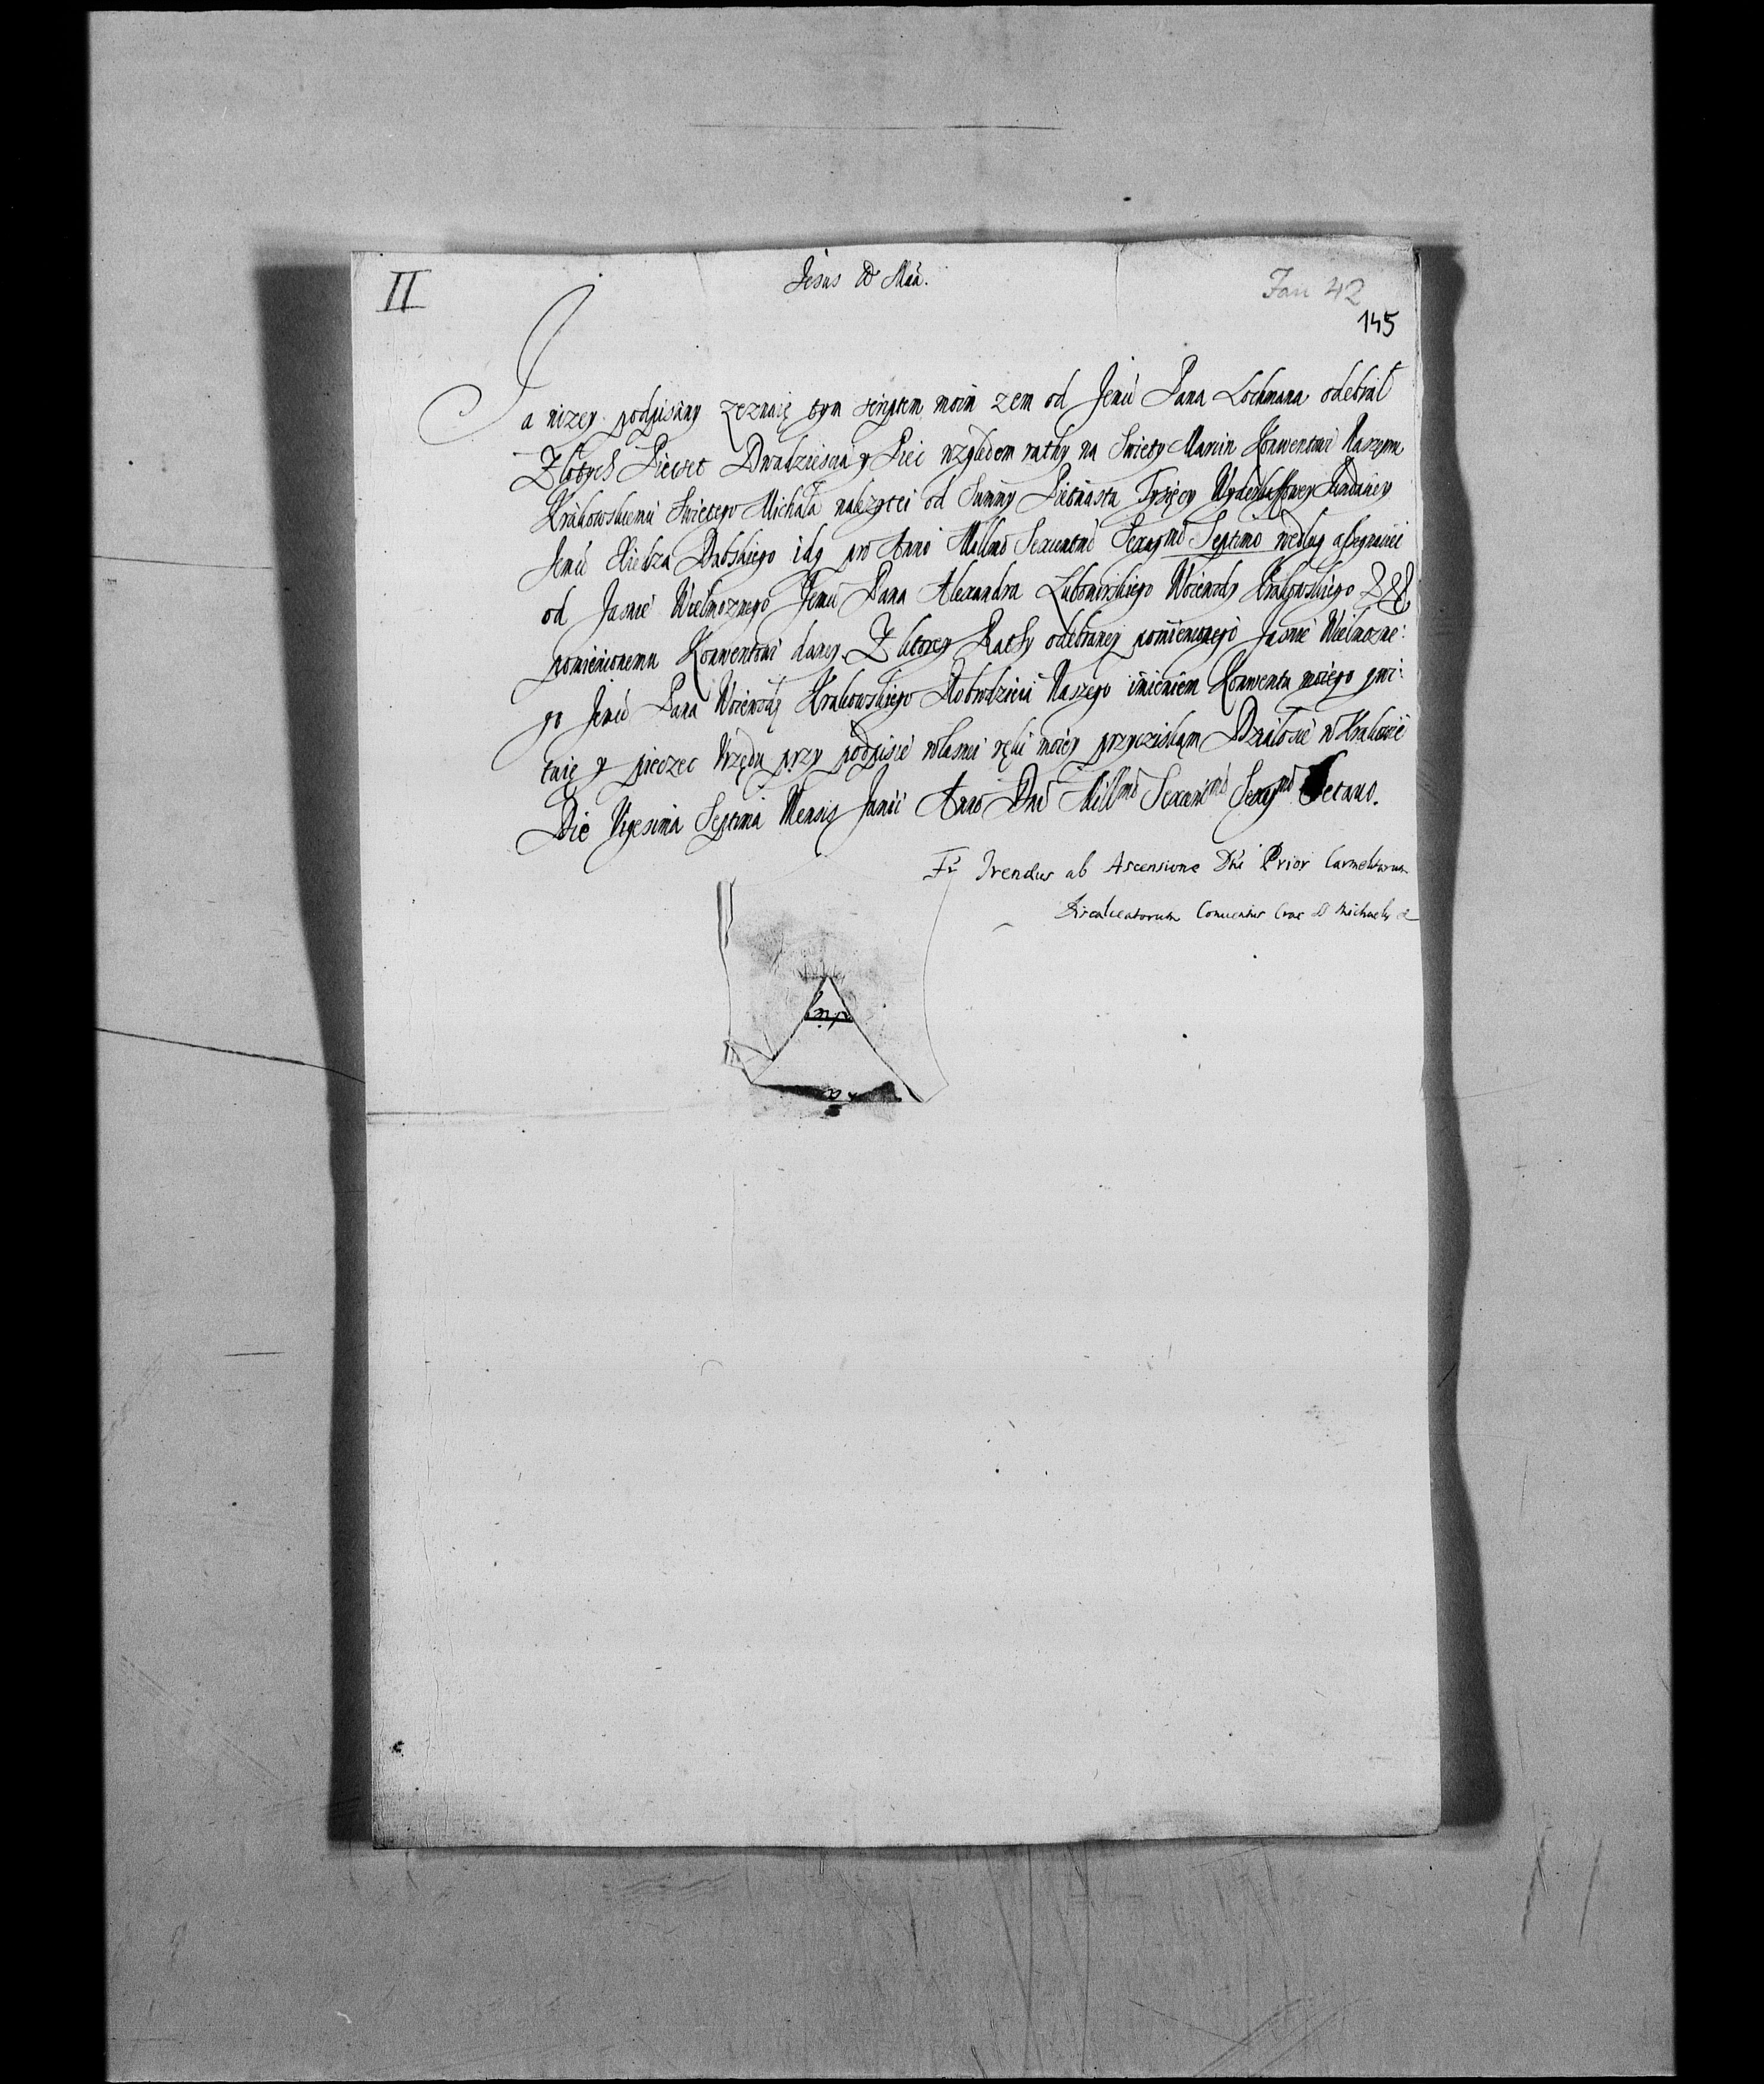 II
Jesus & Maa.
Jan 42
145
Ja nizey podpisany zeznaię tym scriptem moim zem od Jemci Pana Lochmana odebrał
Złotych Piecset Dwadziescia y Piec względem rathy na Swięty Marcin Konwentowi Naszęmu
Krakowskiemu Swiętego Michała nalezytei od Summy Pietnastu Tysięcy Wyderkoffowey Fundaciey
Jemci Xiedza Dubskiego idq pro Anno Millmo Sexcentmo Sexagmo Septimo według assegnaciei
od Jasnie Wielmoznego Jemci Pana Alexandra Lubomirskiego Woiewody Krakowskiego
pomienionemu Konwentowi daney. Z ktorey Rathy odebraney pomienionego Jasnie Wielmozne:
go Jemci Pana Woiewodę Krakowskiego Dobrodzieia Naszego imieniem Konwentu moiego qwi:
tuię y pieczec Urzędu przy podpisie własnei ręki moiey przyciskam Działosie w Krakowie
Die Vigesima Septima Mensis Junii Anno Dni Millmo Sexcentmo Sexagmo Octauo.
Fr Ireneus ab Ascensione Dni Prior Carmelitarum
Discalceatorum Conuentus Crac S Michaelis